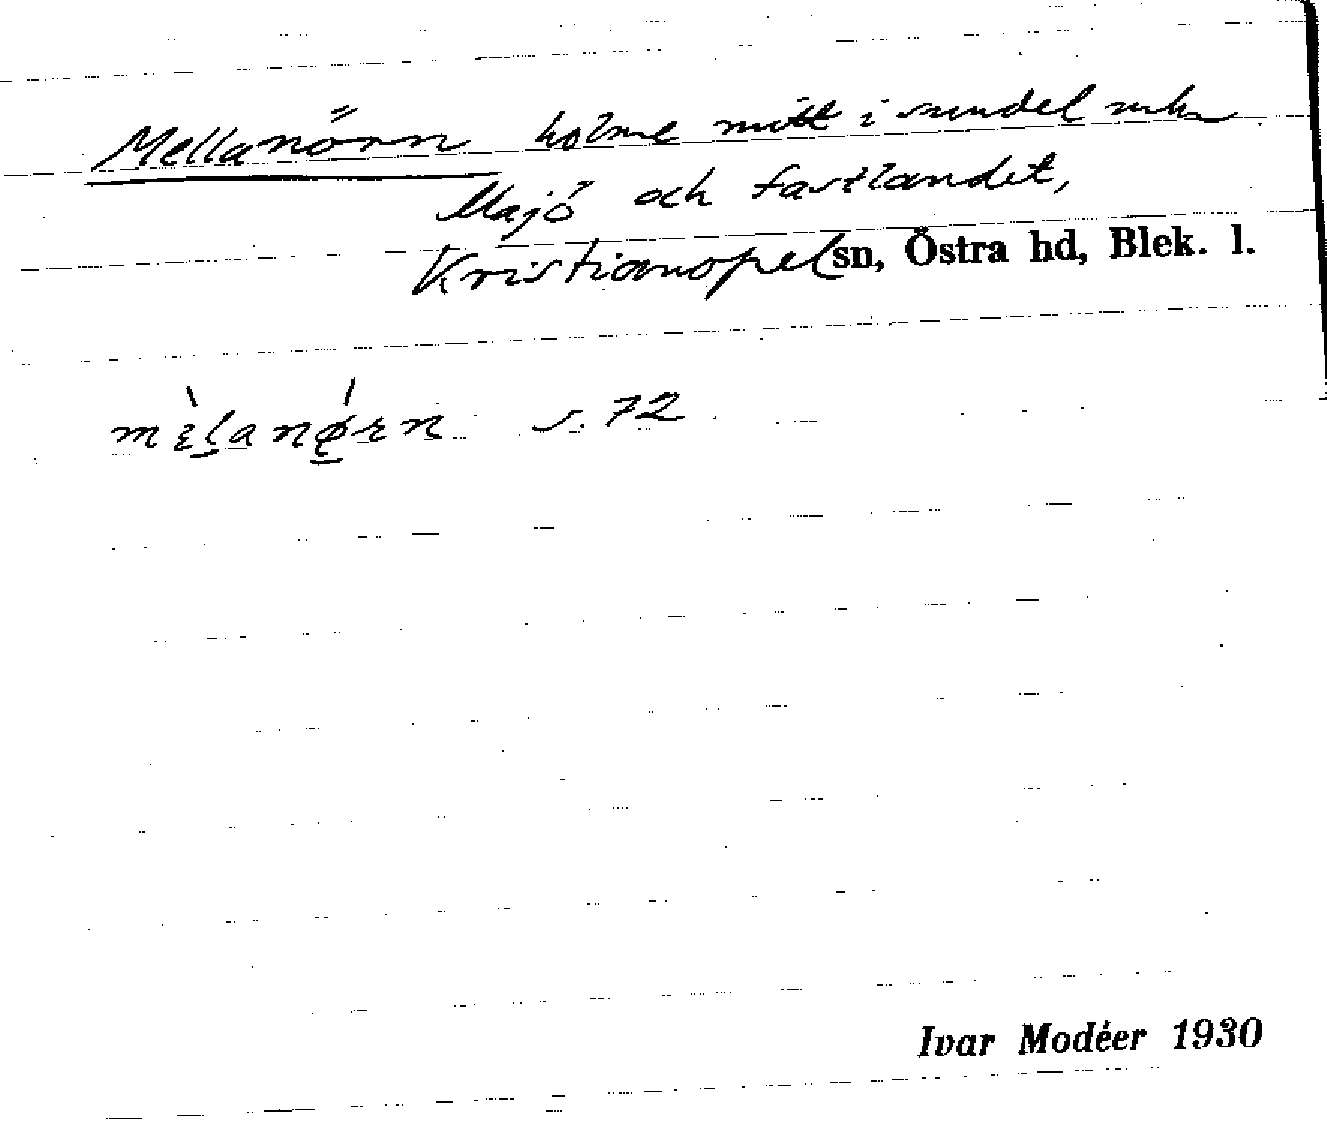 Mellanörn holme mitt i sundet mln
Majö och fastlandet,
Kristianopel sn, Östra hd, Blek. l.
mèlanǿrn s. 72
Ivar Modéer 1930